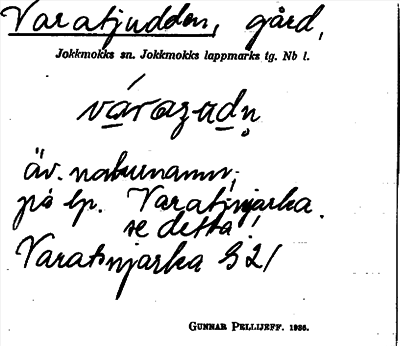 Varatjudden, gård,
Jokkmokks sn. Jokkmokks lappmarks tg. Nb l.
äv. naturnamn;
på lp. Varatjnjarka.
se detta!
Varatsnjarka S 21
GUNNAR PELLIJEFF. 1936.